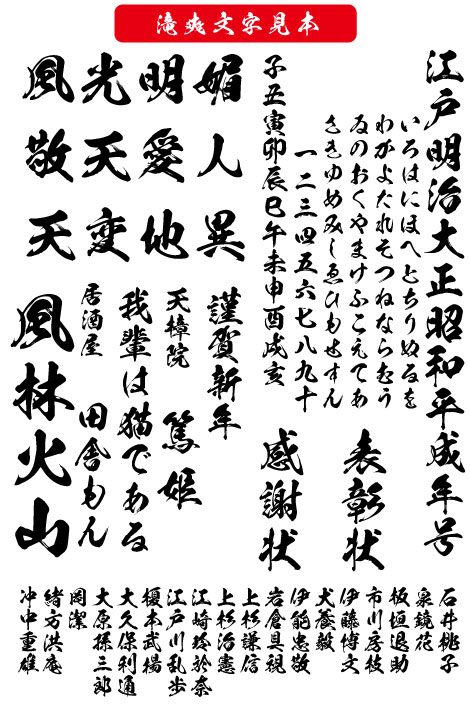 滝爽文字見本
江戸明治大正昭和平成年号
いろはにほへとちりぬるを
わがよたれそつねならむう
ゐのおくやまけふこえてあ
さきゆめみしゑひもせすん
一二三四五六七八九十
子丑寅卯辰巳午未申酉戌亥
表彰状
感謝状
風光明媚
敬天愛人
天変地異
謹賀新年
天樟院 篤姫
我輩は猫である
居酒屋 田舎もん
風林火山
石井桃子
泉鏡花
板垣退助
市川房枝
伊藤博文
犬養毅
伊能忠敬
岩倉具視
上杉謙信
上杉治憲
江崎玲於奈
江戸川乱歩
榎本武揚
大久保利通
大原孫三郎
岡潔
緒方洪庵
冲中重雄